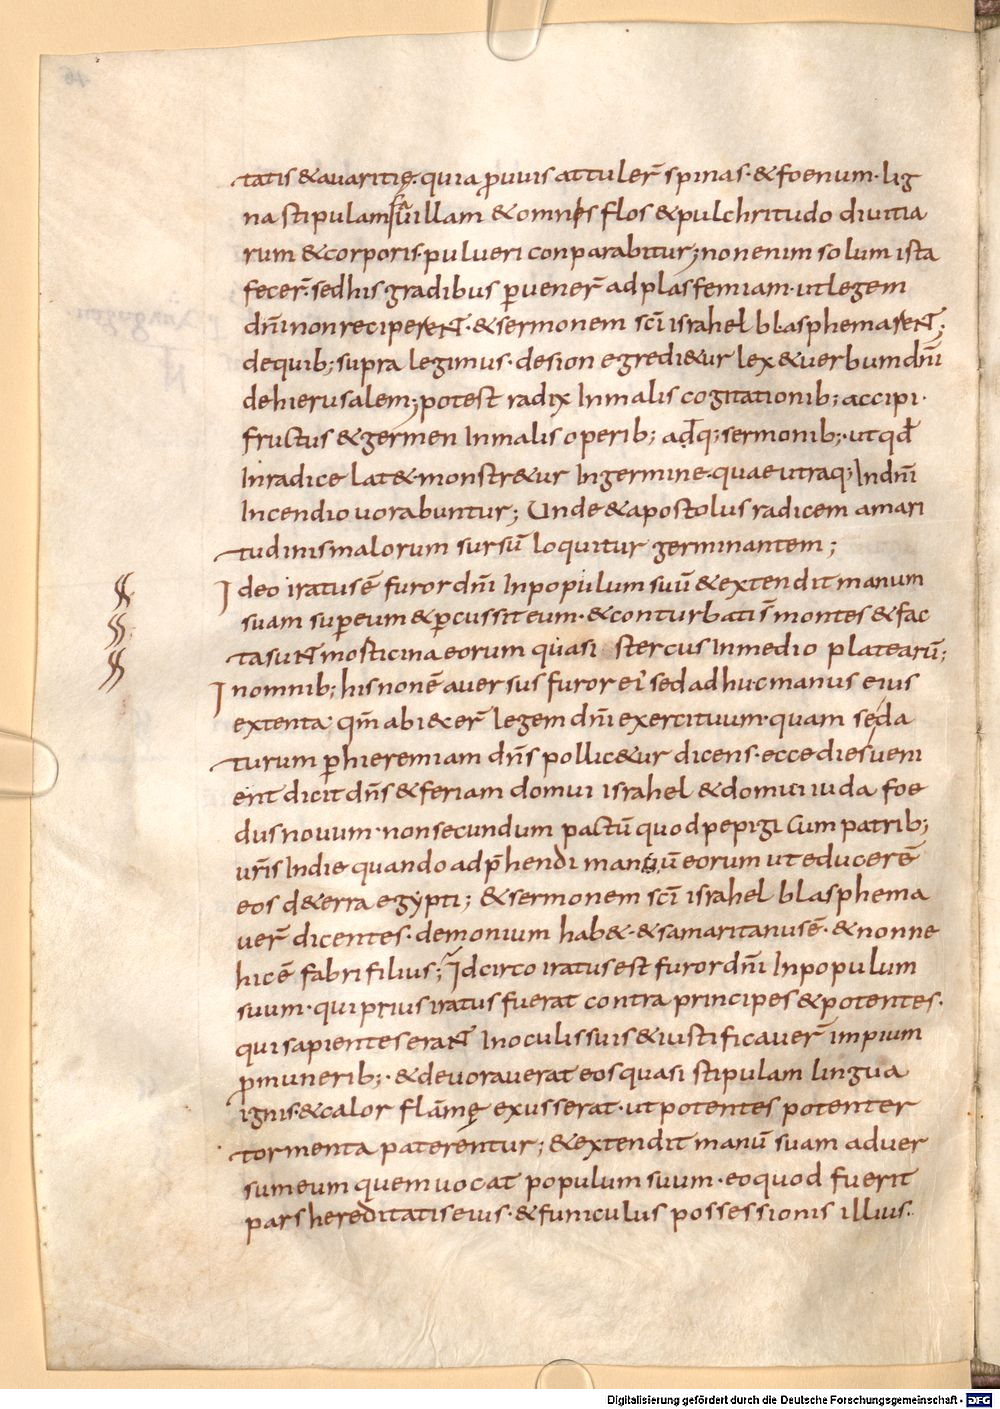 tatis & auaritię. quia p̄ uuis attuler̄ spinas· & foenum· lig
na stipulam fauillam & omnes flos & pulchritudo diuitia
rum & corporis· pulueri conparabitur; non enim solum ista
fecer̄· sed his gradibus ꝑuener̄ ad plasfemiam· ut legem
dn̄i non reciperent· & sermonem sc̄i israhel blasphemarent;
de quib; supra legimus· de sion egredi&ur lex & uerbum dn̄i
de hierusalem; potest radix In malis cogitationib; accipi·
fructus & germen In malis operib; adq; sermonib;· ut qđ
In radice lat& monstr&ur In germine· quae utraq; In dn̄i
Incendio uorabuntur; Unde & apostolus radicem amari
tudinis malorum sursū loquitur germinantem;
Ideo iratus ē furor dn̄i In populum suū & extendit manum
suam suꝑ eum & ꝑcussit eum· & conturbati s̄ montes & fac
ta sunt mosticina eorum quasi stercus In medio platearū;
In omnib; his non ē auersus furor ei' sed adhuc manus eius
extenta· qm̄ abiecer̄ legem dn̄i exercituum· quam se da
turum ꝑ hieremiam dn̄s pollic&ur dicens· ecce dies ueni
ent dicit dn̄s & feriam domui israhel & domui iuda foe
dus nouum· non secundum pactū quod pepigi cum patrib;
ur̄is In die quando adp̄hendi manū eorum ut educerē
eos de terra egypti; & sermonem sc̄i israhel blasphema
uer̄ dicentes· demonium hab&· & samaritanus ē· & nonne
hic ē fabri filius; Idcirco iratus est furor dn̄i In populum
suum· qui prius iratus fuerat contra principes & potentes·
qui sapientes erant In oculis suis & iustificauer̄ impium
ꝓ munerib;· & deuorauerat eos quasi stipulam lingua
ignis· & calor flāmę exusserat· ut potentes potenter
tormenta paterentur; & extendit manū suam aduer
sum eum quem uocat populum suum· eo quod fuerit
pars hereditatis eius· & funiculus possessionis illius·
Digitalisierung gefördert durch die Deutsche Forschungsgemeinschaft - DFG